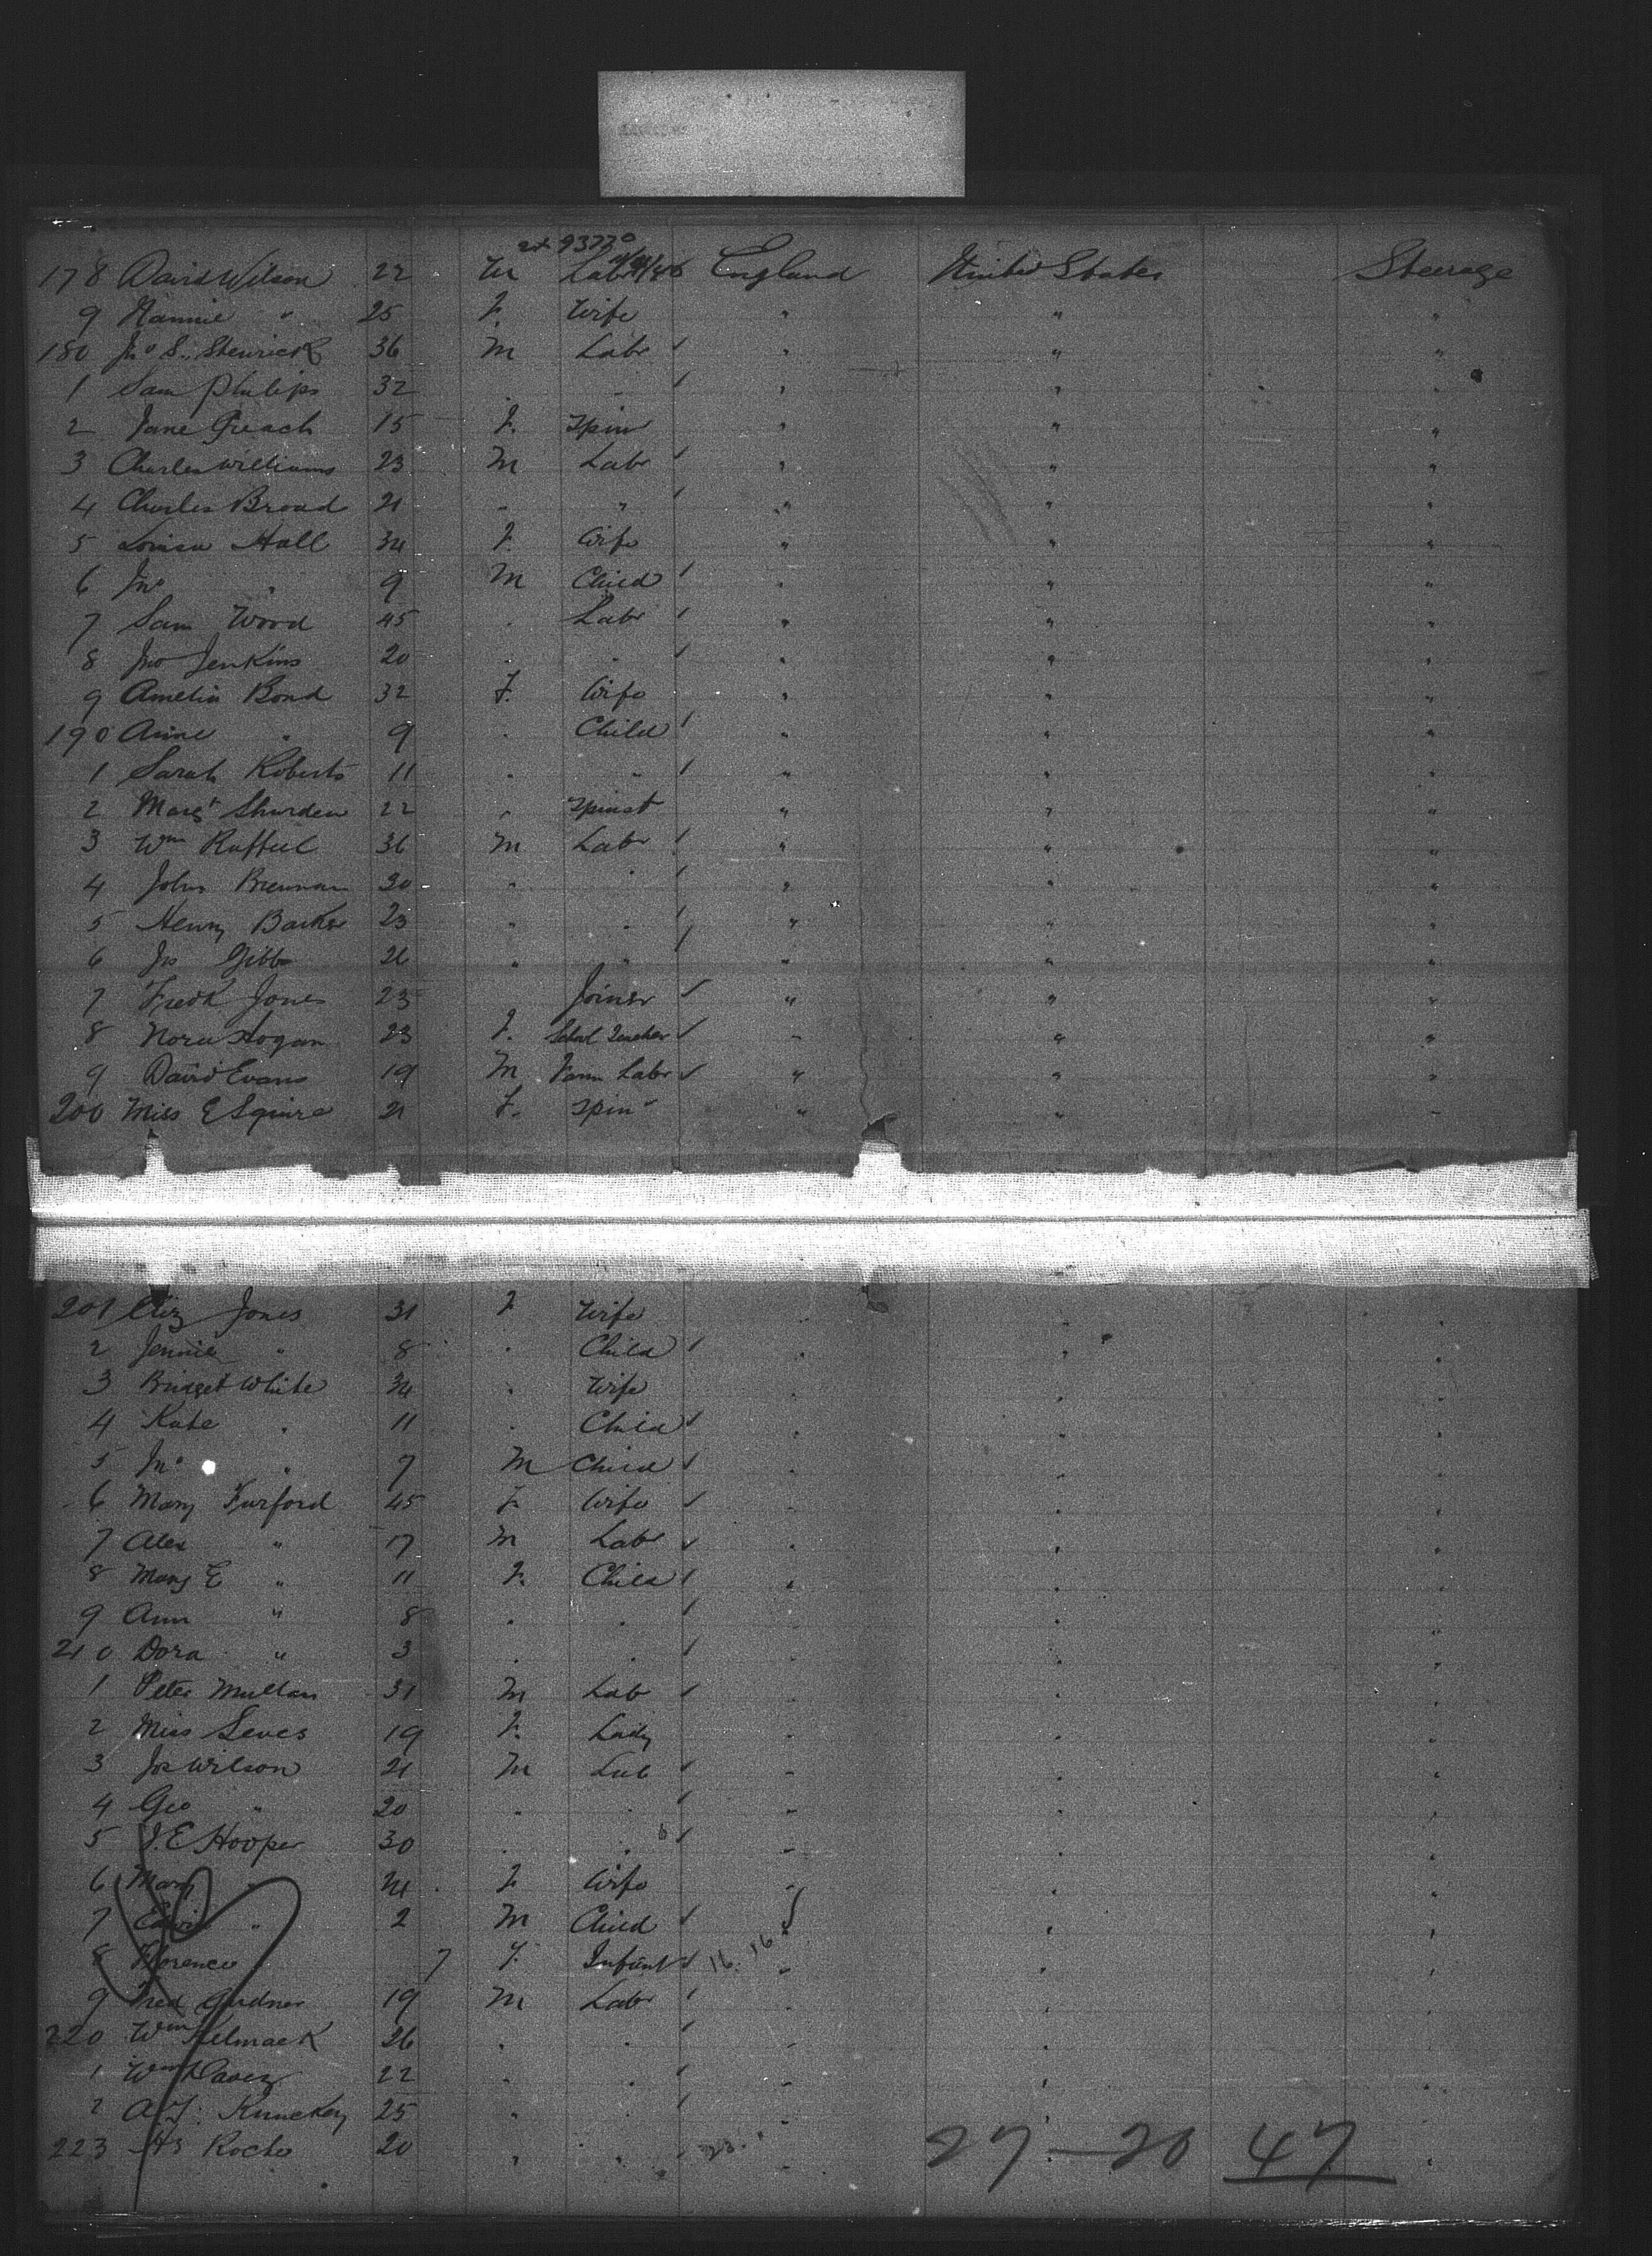 93770
178 David Wilson 22 M Labr England United States Steerage
9 Nannie " 25 F. Wife " " "
180 Jno S. Stenrick 36 M Labr " " "
1 Sam Philips 32 " " " " "
2 Jane 15 F. Spin " " "
3 Charles Williams 23 M Labr " " "
4 Charles Broad 21 " " " " "
5 Louisa Hall 34 F. Wife " " "
6 Jno " 9 M Child " " "
7 Sam Wood 45 " Labr " " "
8 Jno Jenkins 20 " " " " "
9 Amelia Bond 32 F. Wife " " "
190 Anne " 9 " Child " " "
1 Sarah Roberts 11 " " " " "
2 Margt 22 " Spinst " " "
3 Wm 36 M Labr " " "
4 John Brennan 30 " " " " "
5 Henry Barker 23 " " " " "
6 Js Gibbs 26 " " " " "
7 Fredk Jones 23 Joiner " " "
8 Nora Hogan 23 F. School Teacher " " "
9 David Evans 19 M Farm Labr " " "
200 Miss E Squire 21 F. Spinr " " "
201 Eliz Jones 31 F Wife " "
2 Jennie " 8 " Child " " "
3 Bridget White 34 " Wife " " "
4 Kate " 11 " Child " " "
5 Jno " 7 M Child " " "
6 Mary Furford 45 F. Wife " " "
7 Alex " 17 M Labr " " "
8 Mary E " 11 F. Child " " "
9 Ann " 8 " " " " "
210 Dora " 3 " " " " "
1 Peter Mullan 31 M Lab " " "
2 Miss 19 F. Lady " " "
3 Jos Wilson 21 M Lab " " "
4 Geo " 20 " " " " "
5 J.E. Hooper 30 " " " " "
6 Mary " 24 F Wife " " "
7 Edwin " 2 M Child " " "
8 Florence " 7 F. Infant 16. 16 " " "
9 Fred Gardner 19 M Labr " " "
220 Wm 26 " " " " "
1 Wm Davey 22 " " " " "
2 25 " " " " "
223 Roche 20 " " 23 " " "
27 — 20 47